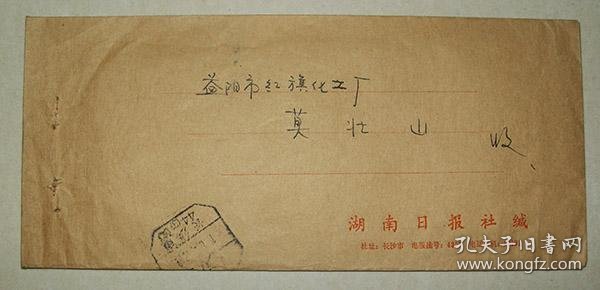 益阳市红旗化工厂
莫壮山 收
湖南日报社缄
社址：长沙市 电报挂号：
孔夫子旧书网
www.kongfz.com